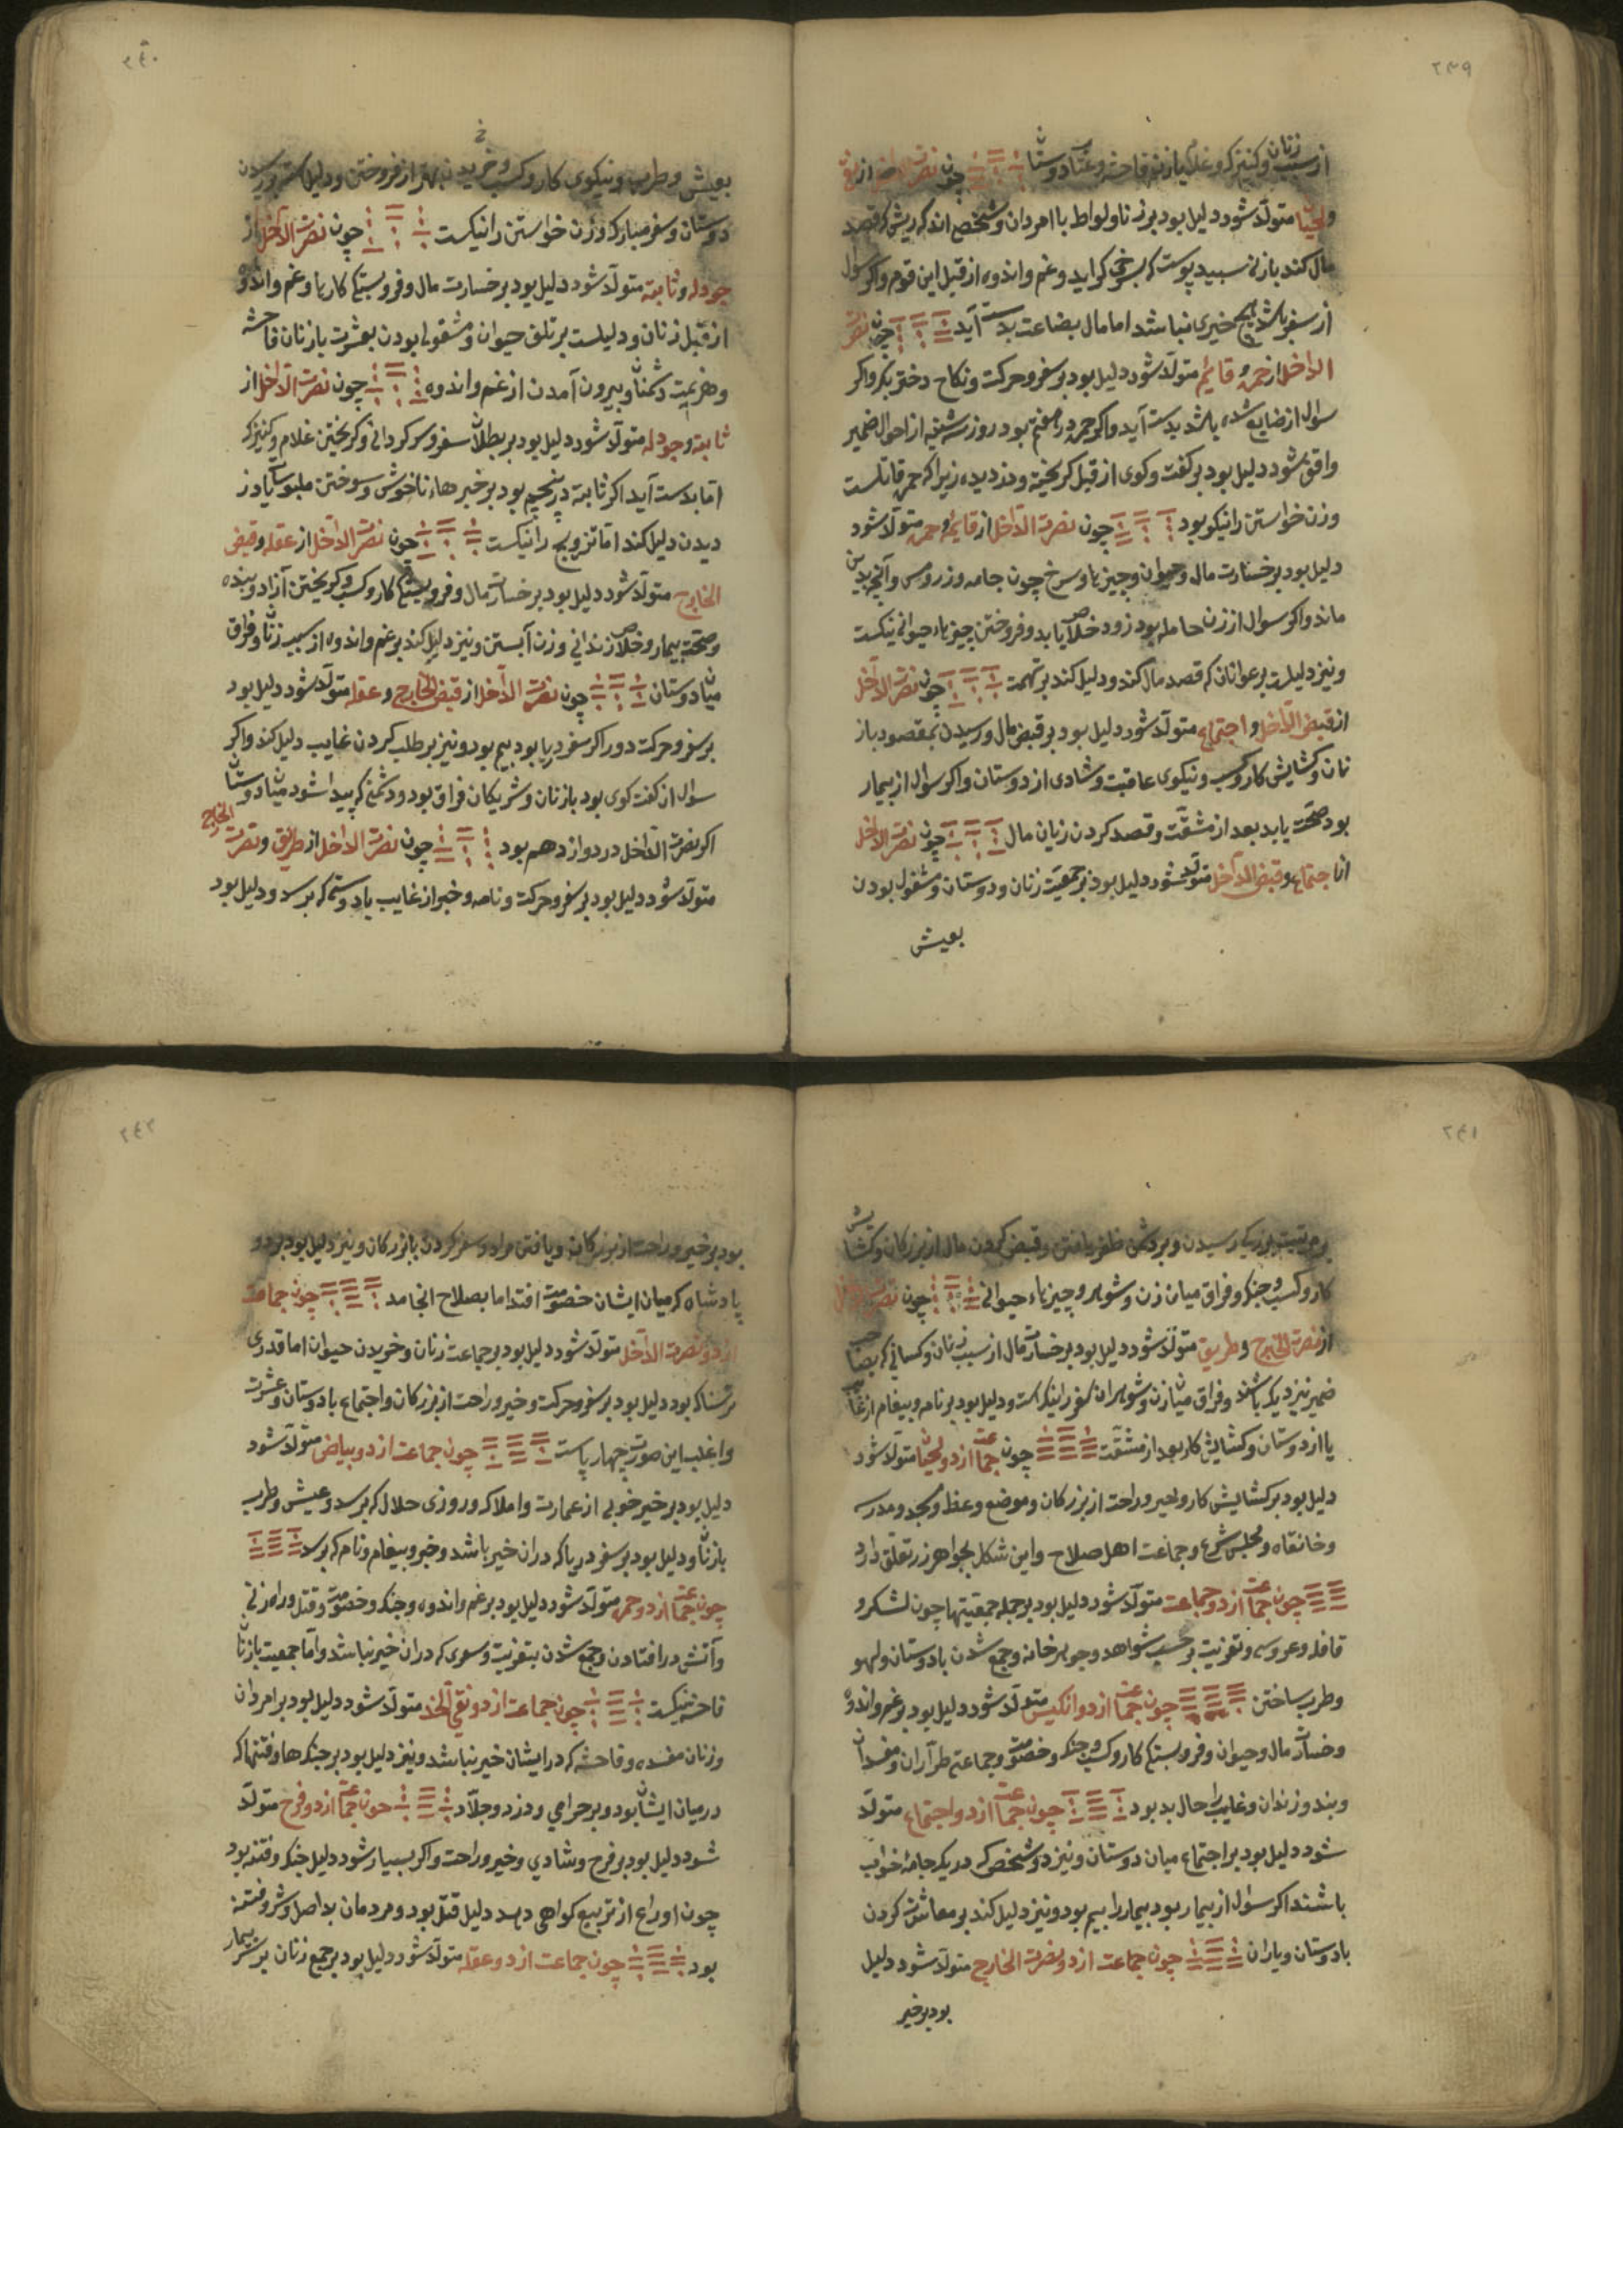 ۲۳۹
از سبب زنان و کنیزک و غلام یا زن فاحشه و عتاب دوستان چون نصرت الداخل از نقی
و لحیان متولد شود دلیل بود بر زنا و لواط با امردان و شخص اندک ریش که قصد
مال کند با زنی سپید پوست که بسرخی کراید و غم و اندوه از قبل این قوم و اکر سوال
از سفر باشد هیچ خیری نباشد اما مال بضاعت بدست آید چون نصرت
الداخل از حمره و قائم متولد شود دلیل بود بر سفر و حرکت و نکاح دختر بکر و اکر
سوال از ضایع شده باشد بدست آید و اکر حمره در هفتم بود روز سه شنبه از احوال ضمیر
واقف شود دلیل بود بر کفت و کوی از قبل کریخته و دزدیده زیرا که حمره قاتلست
و زن خواستن را نیکو بود چون نصرت الداخل از قایم و حمره متولد شود
دلیل بود بر خسارت مال و حیوان و چیزهاء سرخ چون جامه و زر و مس و آنچه بدین
ماند و اکر سوال از زن حامله بود زود خلاص یابد و فروختن چیزهاء حیوانی نیکست
و نیز دلیلست بر عوانان که قصد مال کند و دلیل کند بر تهمت چون نصرت الداخل
از قبض الداخل و اجتماع متولد شود دلیل بود بر قبض مال و رسیدن بمقصود باز
نان و کشایش کار و کسب و نیکوی عاقبت و شادی از دوستان و اکر سوال از بیمار
بود صحت یابد بعد از مشقت و قصد کردن زیان مال چون نصرت الداخل
از اجتماع و قبض الداخل متولد شود دلیل بود بر جمعیت زنان و دوستان و مشغول بودن
بعیش
۲۴۰
بعیش و طرب و نیکوی کار و کسب و خریدن بهتر از فروختن و دلیل است بر رسیدن
دوستان و سفر مبارک و زن خواستن را نیکست چون نصرت الداخل از
جودله و ثابته متولد شود دلیل بود بر خسارت مال و فروبستکی کارها و غم و اندوه
از قبل زنان و دلیلست بر تلف حیوان و مشغول بودن بعشرت با زنان فاحشه
و هزیمت دشمنان و بیرون آمدن از غم و اندوه چون نصرت الداخل از
ثابته و جودله متولد شود دلیل بود بر بطلان سفر و سرکردانی و کریختن غلام و کنیزک
اما بدست آید اکر ثابته در پنجم بود بر خبرهاء ناخوش و سوختن ملبوسات یا دز
دیدن دلیل کند اما تزویج را نیکست چون نصرت الداخل از عقله و قبض
الخارج متولد شود دلیل بود بر خسارت مال و فروبستکی کار و کسب و کریختن آزاد و بنده
و صحت بیمار و خلاص زندانی و زن آبستن و نیز دلیل کند بر غم و اندوه از سبب زنان و فراق
میان دوستان چون نصرت الداخل از قبض الخارج و عقله متولد شود دلیل بود
بر سفر و حرکت دور اکر سفر دریا بود بیم بود و نیز بر طلب کردن غایب دلیل کند و اکر
سوال از کفت کوی بود با زنان و شریکان فراق بود و دشمنی که پیدا شود میان دوستان
اکر نصرت الداخل در دوازدهم بود چون نصرت الداخل از طریق و نصرت الخارج
متولد شود دلیل بود بر سفر و حرکت و نامه و خبر از غایب یا دوستی که برسد و دلیل بود
۲۴۱
بر مرتبت بزرک رسیدن و بر دشمن ظفر یافتن و قبض کردن مال از بزرکان و کشایش
کار و کسب و جنک و فراق میان زن و شوهر و چیزهاء حیوانی چون نصرت الداخل
از نصرت الخارج و طریق متولد شود دلیل بود بر خسارت مال از سبب زنان و کسانی که
ضمیر نیز دیکر باشند و فراق میان زن و شوهر ان سفر را نیک است و دلیل بود بر نامه و پیغام از غایب
یا از دوستان و کشایش کار بعد از مشقت چون جماعت از دو لحیان متولد شود
دلیل بود بر کشایش کار و خیر و راحت از بزرکان و موضع وعظ و مسجد و مدرسه
و خانقاه و مجلس شرع و جماعت اهل صلاح و این شکل بجواهر زر تعلق دارد
چون جماعت از دو جماعت متولد شود دلیل بود بر جمله جمعیتها چون لشکر و
قافله و عروسی و تعزیت بر حسب شواهد و جوهر خانه و جمع شدن با دوستان و لهو
و طرب ساختن چون جماعت از دو انکیس متولد شود دلیل بود بر غم و اندوه
و خسارت مال و حیوان و فروبستکی کار و کسب و جنک و خصومت و جماعتی طرآران و مفسدان
و بند و زندان و غایب را حال بد بود چون جماعت از دو اجتماع متولد
شود دلیل بود بر اجتماع میان دوستان و نیز دو شخص که در یک جامه خواب
باشند اکر سؤال از بیمار بود بیمار را بیم بود و نیز دلیل کند بر معاشرت کردن
با دوستان و یاران چون جماعت از دو نصرت الخارج متولد شود دلیل
بود بر خیر
۲۴۲
بود بر خیر و راحت از بزرکان و یافتن مراد و سفر کردن با بزرکان و نیز دلیل بود بر دو
پادشاه که میان ایشان خصومت افتد اما بصلاح انجامد چون جماعت
از دو نصرت الداخل متولد شود دلیل بود بر جماعت زنان و خریدن حیوان اما قدری
ترسناک بود دلیل بود بر سفر و حرکت و خیر و راحت از بزرکان و اجتماع با دوستان و عشرت
و اغلب این صورت چهار پاست چون جماعت از دو بیاض متولد شود
دلیل بود بر خیر خوبی از عمارت و املاک و روزی حلال که برسد و عیش و طرب
با زنان و دلیل بود بر سفر دریا که در ان خیر باشد و خبر و پیغام و نام که برسد
چون جماعت از دو حمره متولد شود دلیل بود بر غم و اندوه و جنک و خصومت و قتل و راه زنی
و آتش در افتادن و جمع شدن بتعزیت و سوی که در ان خیر نباشد و اما جمعیت با زنان
فاحشه نیکست چون جماعت از دو نقی الخد متولد شود دلیل بود بر امردان
و زنان مفسده و فاحشه که در ایشان خیر نباشد و نیز دلیل بود بر جنک ها و فتنها که
در میان ایشان بود و بر حرامی و دزد و جلاد چون جماعت از دو فرح متولد
شود دلیل بود بر فرح و شادی و خیر و راحت و اکر بسیار شود دلیل جنک و فتنه بود
چون او را ع از تربیع کواهی دهد دلیل قتل بود و مردمان بد اصل و شر و فتنه
بود چون جماعت از دو عقله متولد شود دلیل بود بر جمع زنان بر سر بیمار